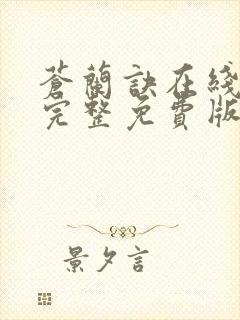 蒼蘭訣在綫
完整免費版
景夕言